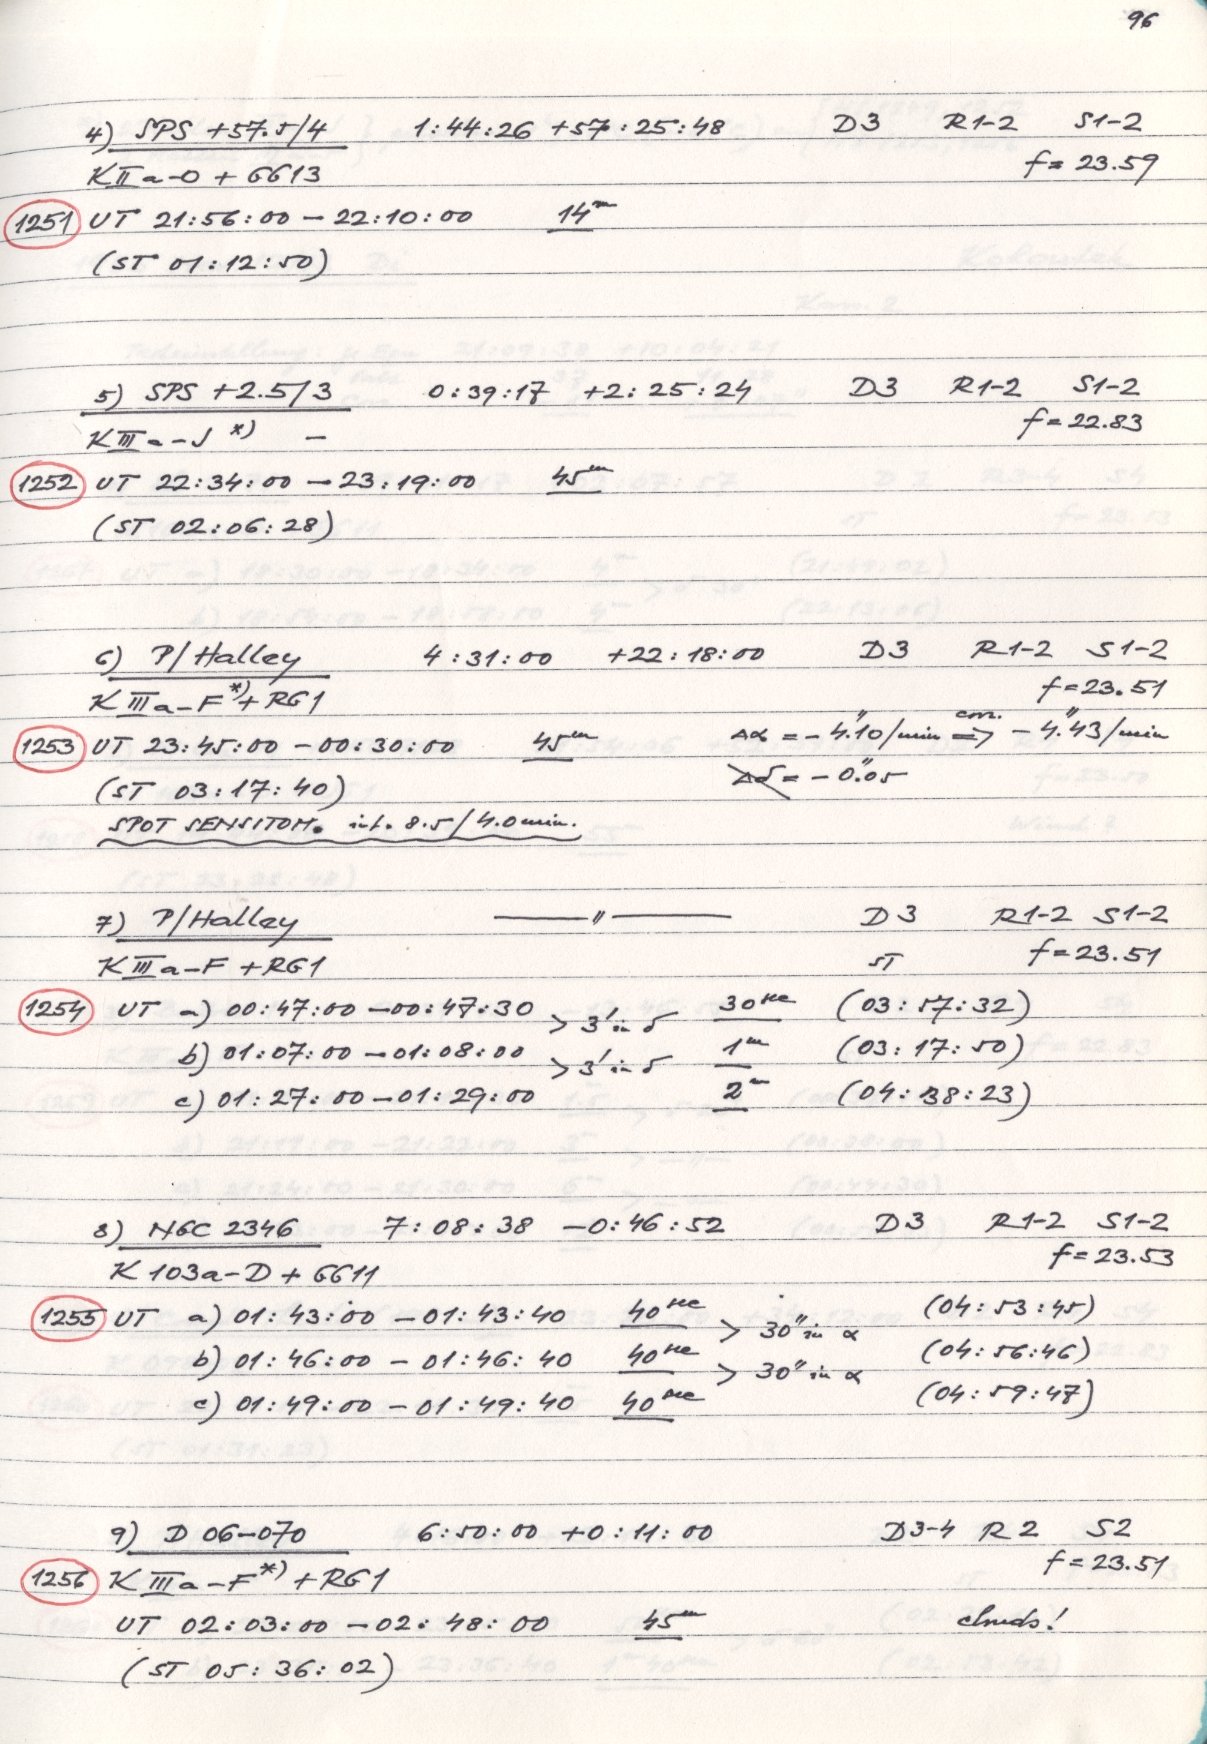 96
4) SPS +57.5/4 1:44:26 +57:25:48 D3 R1-2 S1-2
KIIa-O + GG13 f = 23.59
1251 UT 21:56:00 – 22:10:00 14m
(ST 01:12:50)
5) SPS +2.5/3 0:39:17 +2:25:24 D3 R1-2 S1-2
KIIIa-J *) – f = 22.83
1252 UT 22:34:00 – 23:19:00 45m
(ST 02:06:28)
6) P/Halley 4:31:00 +22:18:00 D3 R1-2 S1-2
KIIIa-F *) + RG1 f = 23.51
1253 UT 23:45:00 – 00:30:00 45m Δα = – 4".10/min corr. ⇒ – 4".43/min
(ST 03:17:40) Δδ = – 0".05
SPOT SENSITOM. int. 8.5/4.0 min.
7) P/Halley —— " —— D3 R1-2 S1-2
KIIIa-F + RG1 ST f = 23.51
1254 UT a) 00:47:00 – 00:47:30 > 3' in δ 30sec (03:57:32)
b) 01:07:00 – 01:08:00 > 3' in δ 1m (03:17:50)
c) 01:27:00 – 01:29:00 2m (04:38:23)
8) NGC 2346 7:08:38 –0:46:52 D3 R1-2 S1-2
K 103a-D + GG11 f = 23.53
1255 UT a) 01:43:00 – 01:43:40 40sec > 30" in α (04:53:45)
b) 01:46:00 – 01:46:40 40sec > 30" in α (04:56:46)
c) 01:49:00 – 01:49:40 40sec (04:59:47)
9) D 06-070 6:50:00 +0:11:00 D3-4 R2 S2
1256 KIIIa-F *) + RG1 f = 23.51
UT 02:03:00 – 02:48:00 45m clouds!
(ST 05:36:02)